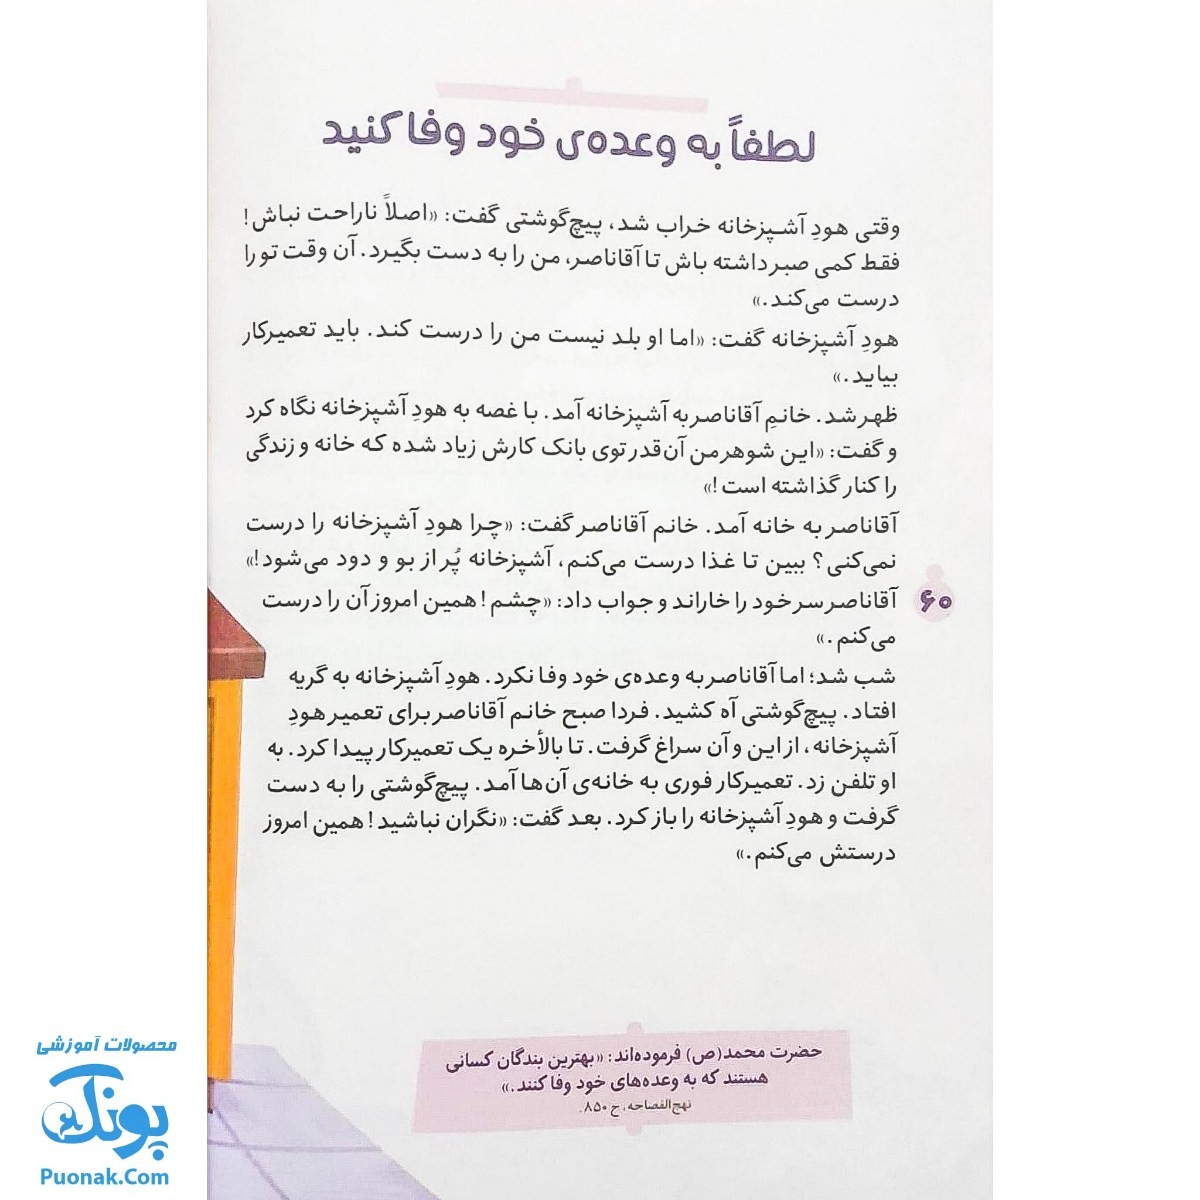 لطفاً به وعده‌ی خود وفا کنید
وقتی هودِ آشپزخانه خراب شد، پیچ‌گوشتی گفت: «اصلاً ناراحت نباش!
فقط کمی صبر داشته باش تا آقاناصر، من را به دست بگیرد. آن وقت تو را
درست می‌کند.»
هودِ آشپزخانه گفت: «اما او بلد نیست من را درست کند. باید تعمیرکار
بیاید.»
ظهر شد. خانمِ آقاناصر به آشپزخانه آمد. با غصه به هودِ آشپزخانه نگاه کرد
و گفت: «این شوهر من آن‌قدر توی بانک کارش زیاد شده که خانه و زندگی
را کنار گذاشته است!»
آقاناصر به خانه آمد. خانم آقاناصر گفت: «چرا هودِ آشپزخانه را درست
نمی‌کنی؟ ببین تا غذا درست می‌کنم، آشپزخانه پُر از بو و دود می‌شود!»
آقاناصر سر خود را خاراند و جواب داد: «چشم! همین امروز آن را درست
می‌کنم.»
۶۰
شب شد؛ اما آقاناصر به وعده‌ی خود وفا نکرد. هودِ آشپزخانه به گریه
افتاد. پیچ‌گوشتی آه کشید. فردا صبح خانم آقاناصر برای تعمیر هودِ
آشپزخانه، از این و آن سراغ گرفت. تا بالأخره یک تعمیرکار پیدا کرد. به
او تلفن زد. تعمیرکار فوری به خانه‌ی آن‌ها آمد. پیچ‌گوشتی را به دست
گرفت و هودِ آشپزخانه را باز کرد. بعد گفت: «نگران نباشید! همین امروز
درستش می‌کنم.»
حضرت محمد(ص) فرموده‌اند: «بهترین بندگان کسانی
هستند که به وعده‌های خود وفا کنند.»
نهج‌الفصاحه، ح ۸۵۰.
محصولات آموزشی
پونک
Puonak.Com